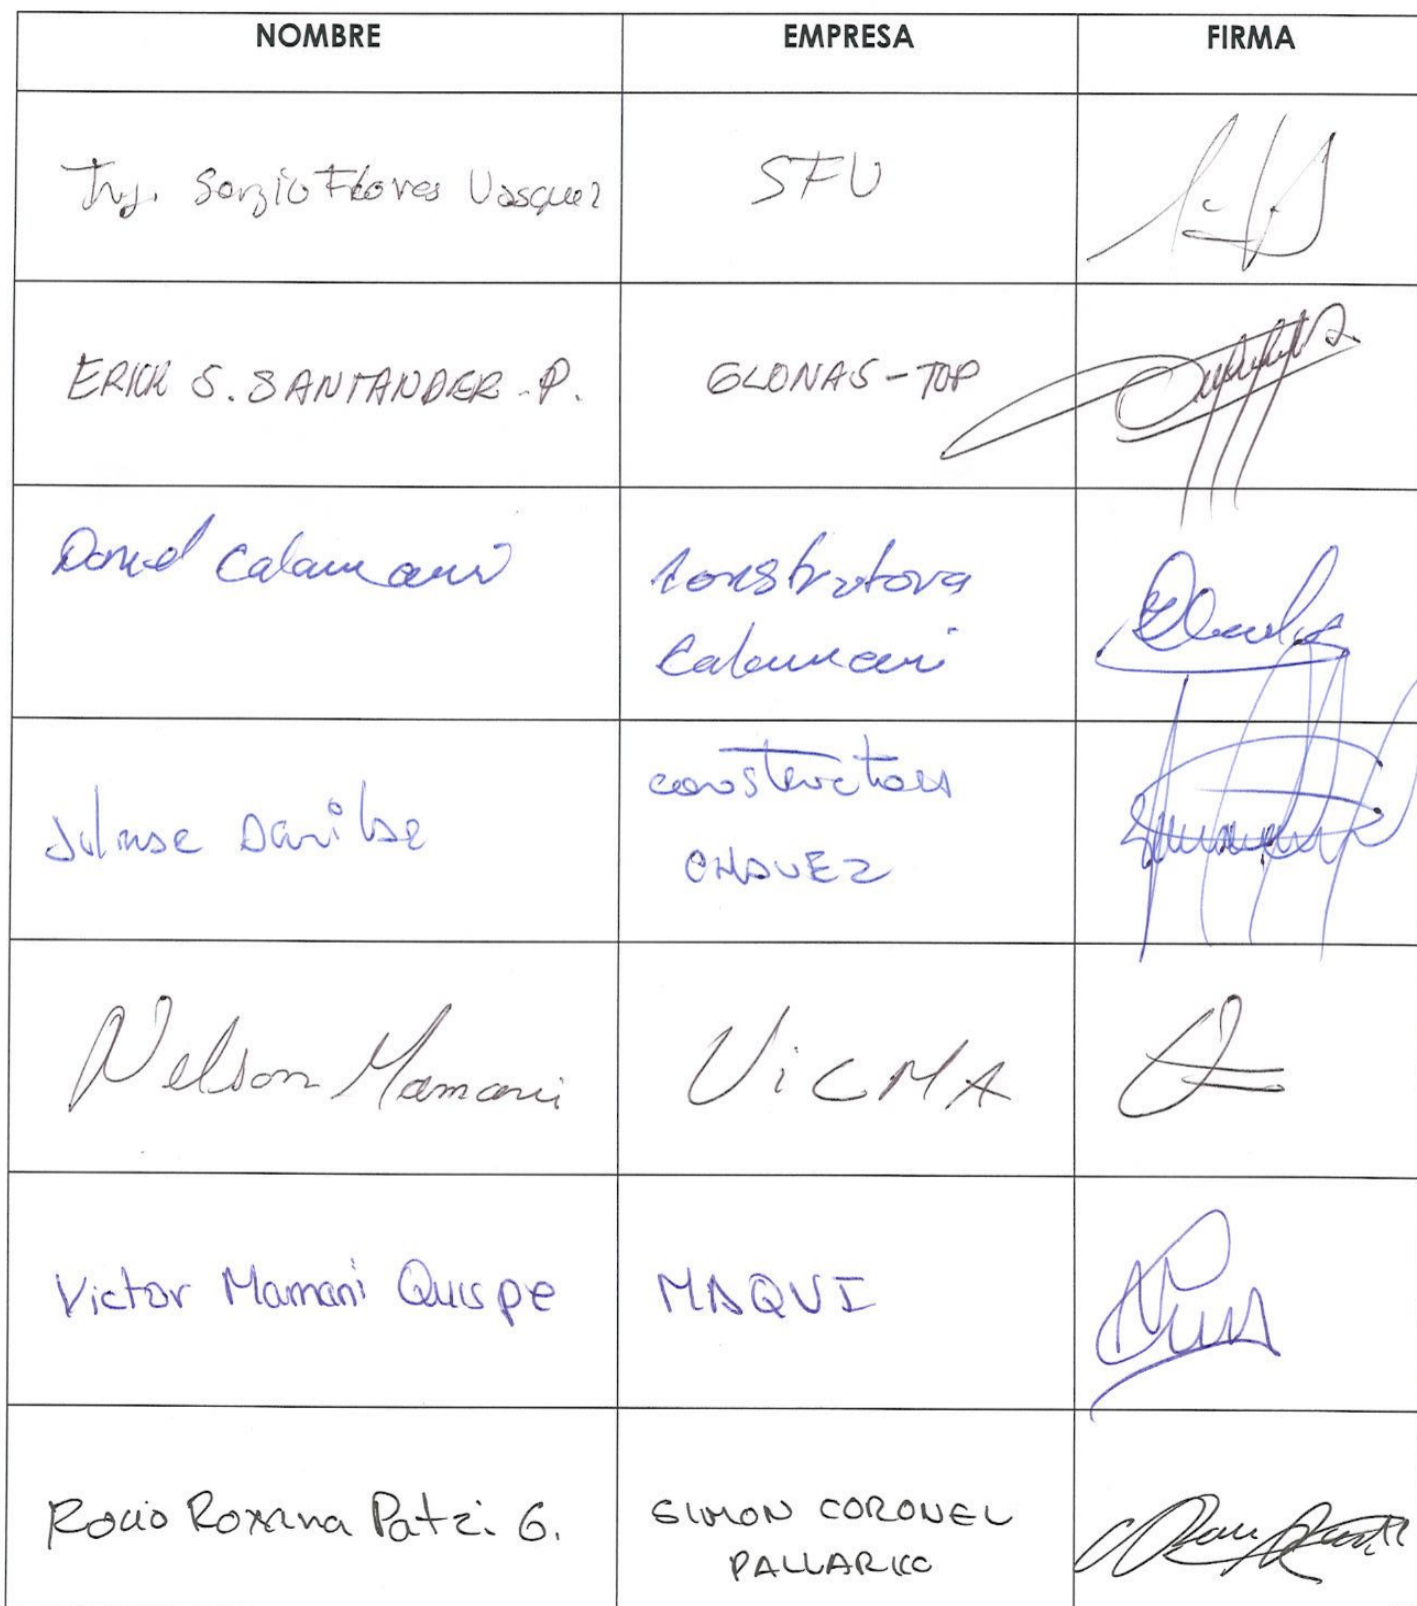 NOMBRE EMPRESA FIRMA
Ing. Sergio Flores Vasquez SFV
ERICK S. SANTANDER P. GLONAS-TOP
Daniel Calamani Construtora
Calamani
Davila constructora
CHAVEZ
Nelson Mamani ViCMA
Victor Mamani Quispe MAQUI
Rocio Roxana Patzi G. SIMON CORONEL
PALLARKO